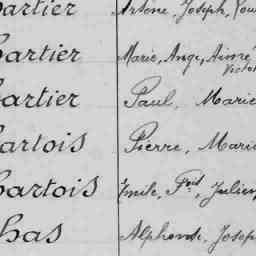 artier Arsène, Joseph, Lou
artier Marie, Ange, Aimé
Victor
artier Paul, Marie
artois Pierre, Marie
artois Emile, Fois, Julien,
has Alphonse, Josep